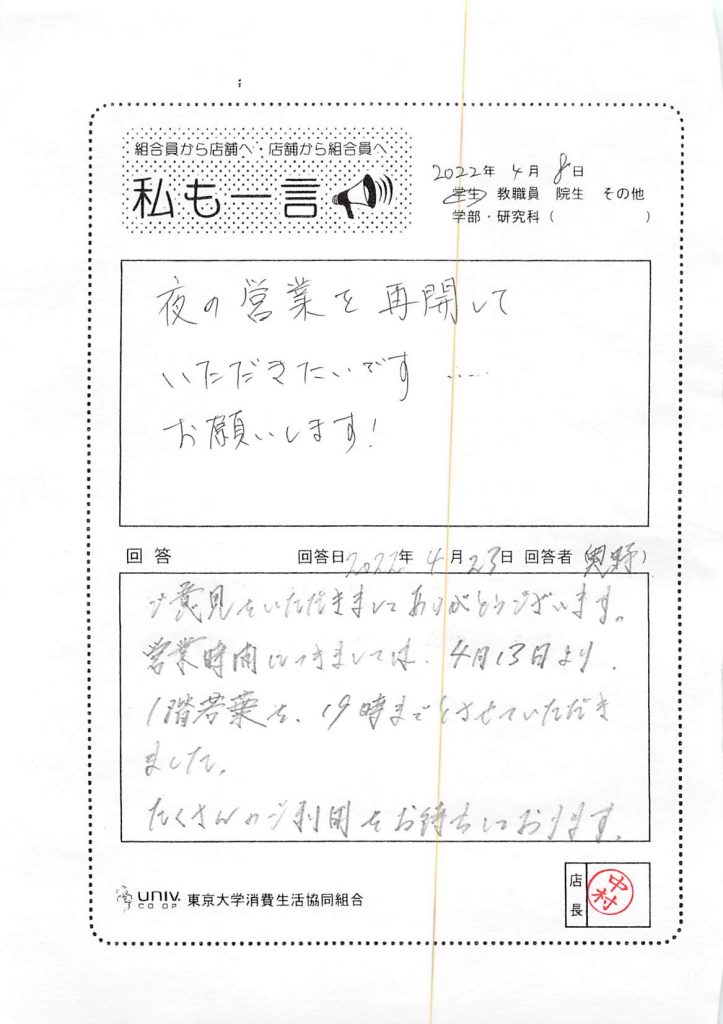 組合員から店舗へ・店舗から組合員へ
私も一言
2022年 4月 8日
学生 教職員 院生 その他
学部・研究科（ ）
夜の営業を再開して
いただきたいです ……
お願いします!
回答 回答日2022年 4月23日 回答者(奥野)
ご意見をいただきましてありがとうございます。
営業時間につきましては、4月13日より、
1階若葉を、19時までとさせていただき
ました。
たくさんのご利用をお待ちしております。
UNIV. CO-OP 東京大学消費生活協同組合
店長 中村